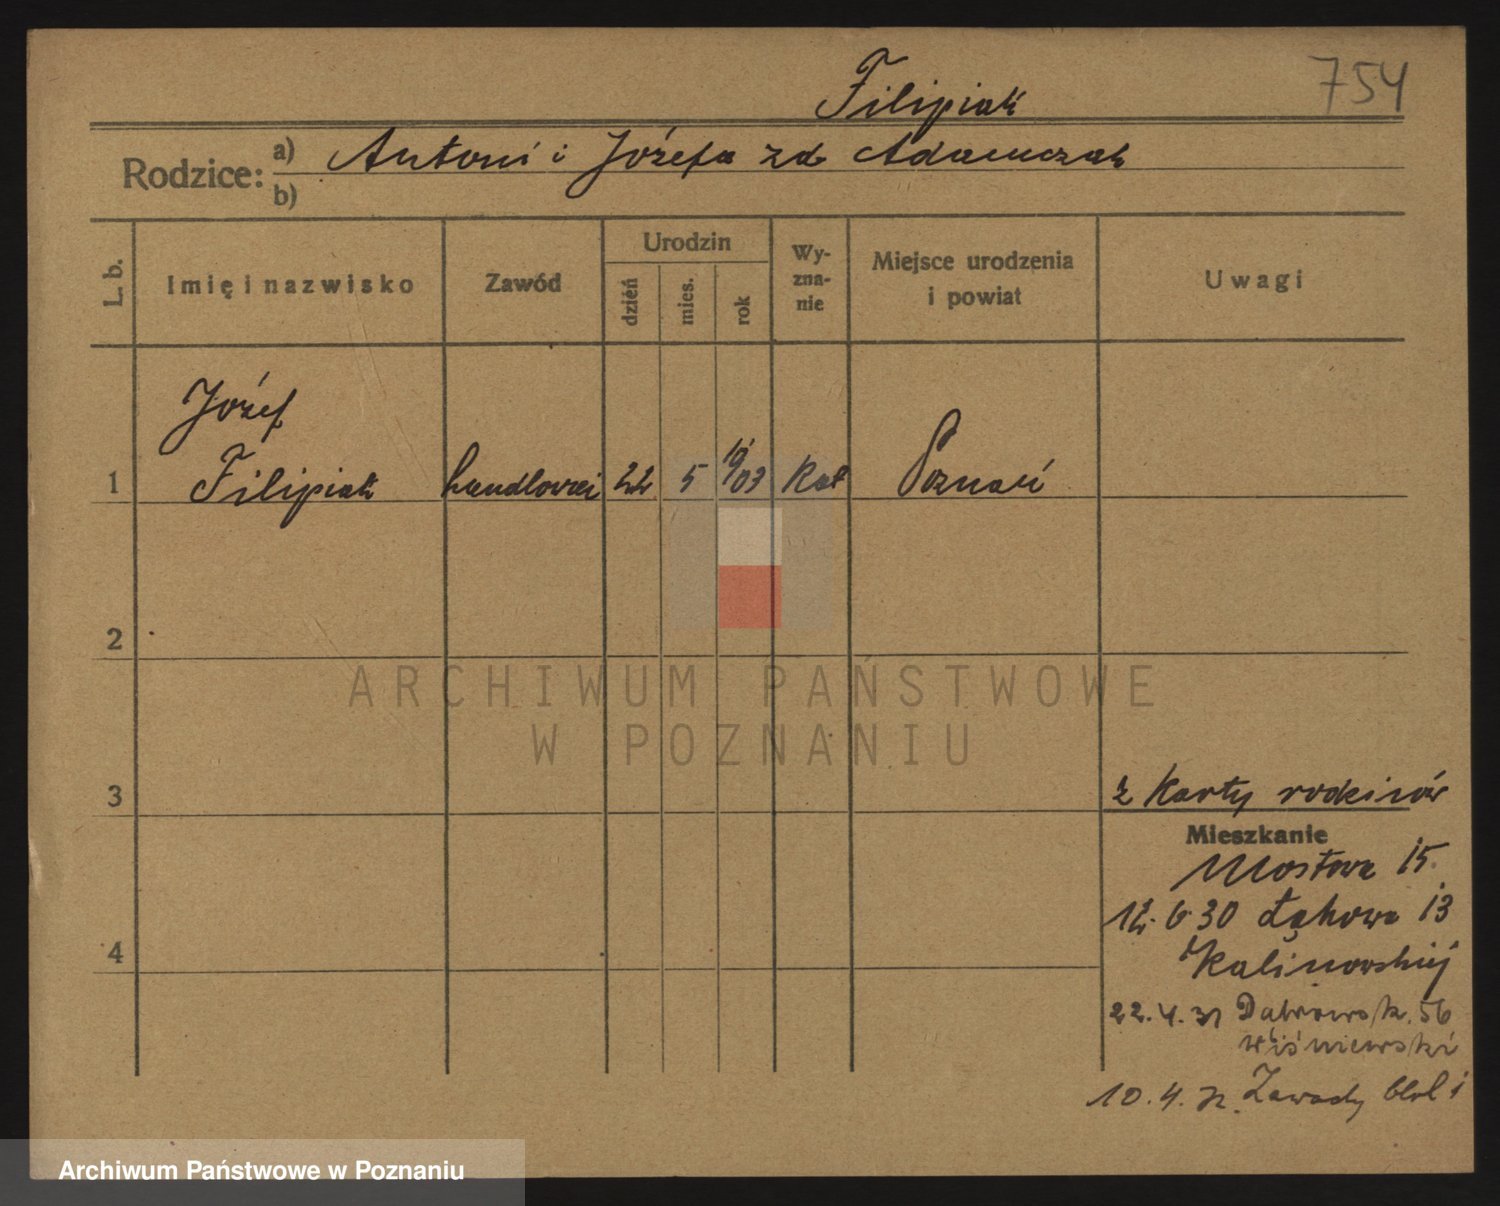 Filipiak
754
Rodzice: a) Antoni i Józefa zd Adamczak
b)
L. b.
Imię i nazwisko
Zawód
Urodzin
dzień
mies.
rok
Wy-
zna-
nie
Miejsce urodzenia
i powiat
Uwagi
Józef
1 Filipiak handlowiec 22 5 19/03 Kat Poznań
2
3
z Karty rodziców
Mieszkanie
Mostowa 15.
12. 6 30 Łąkowa 13
4
Kalinowskiej
22. 4. 31 Dąbrowsk. 56
Wiśniewski
10. 4. Zawady blok i
ARCHIWUM PAŃSTWOWE
W POZNANIU
Archiwum Państwowe w Poznaniu